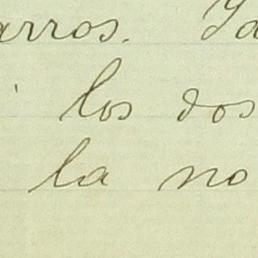 arros. Ya
los dos
la no